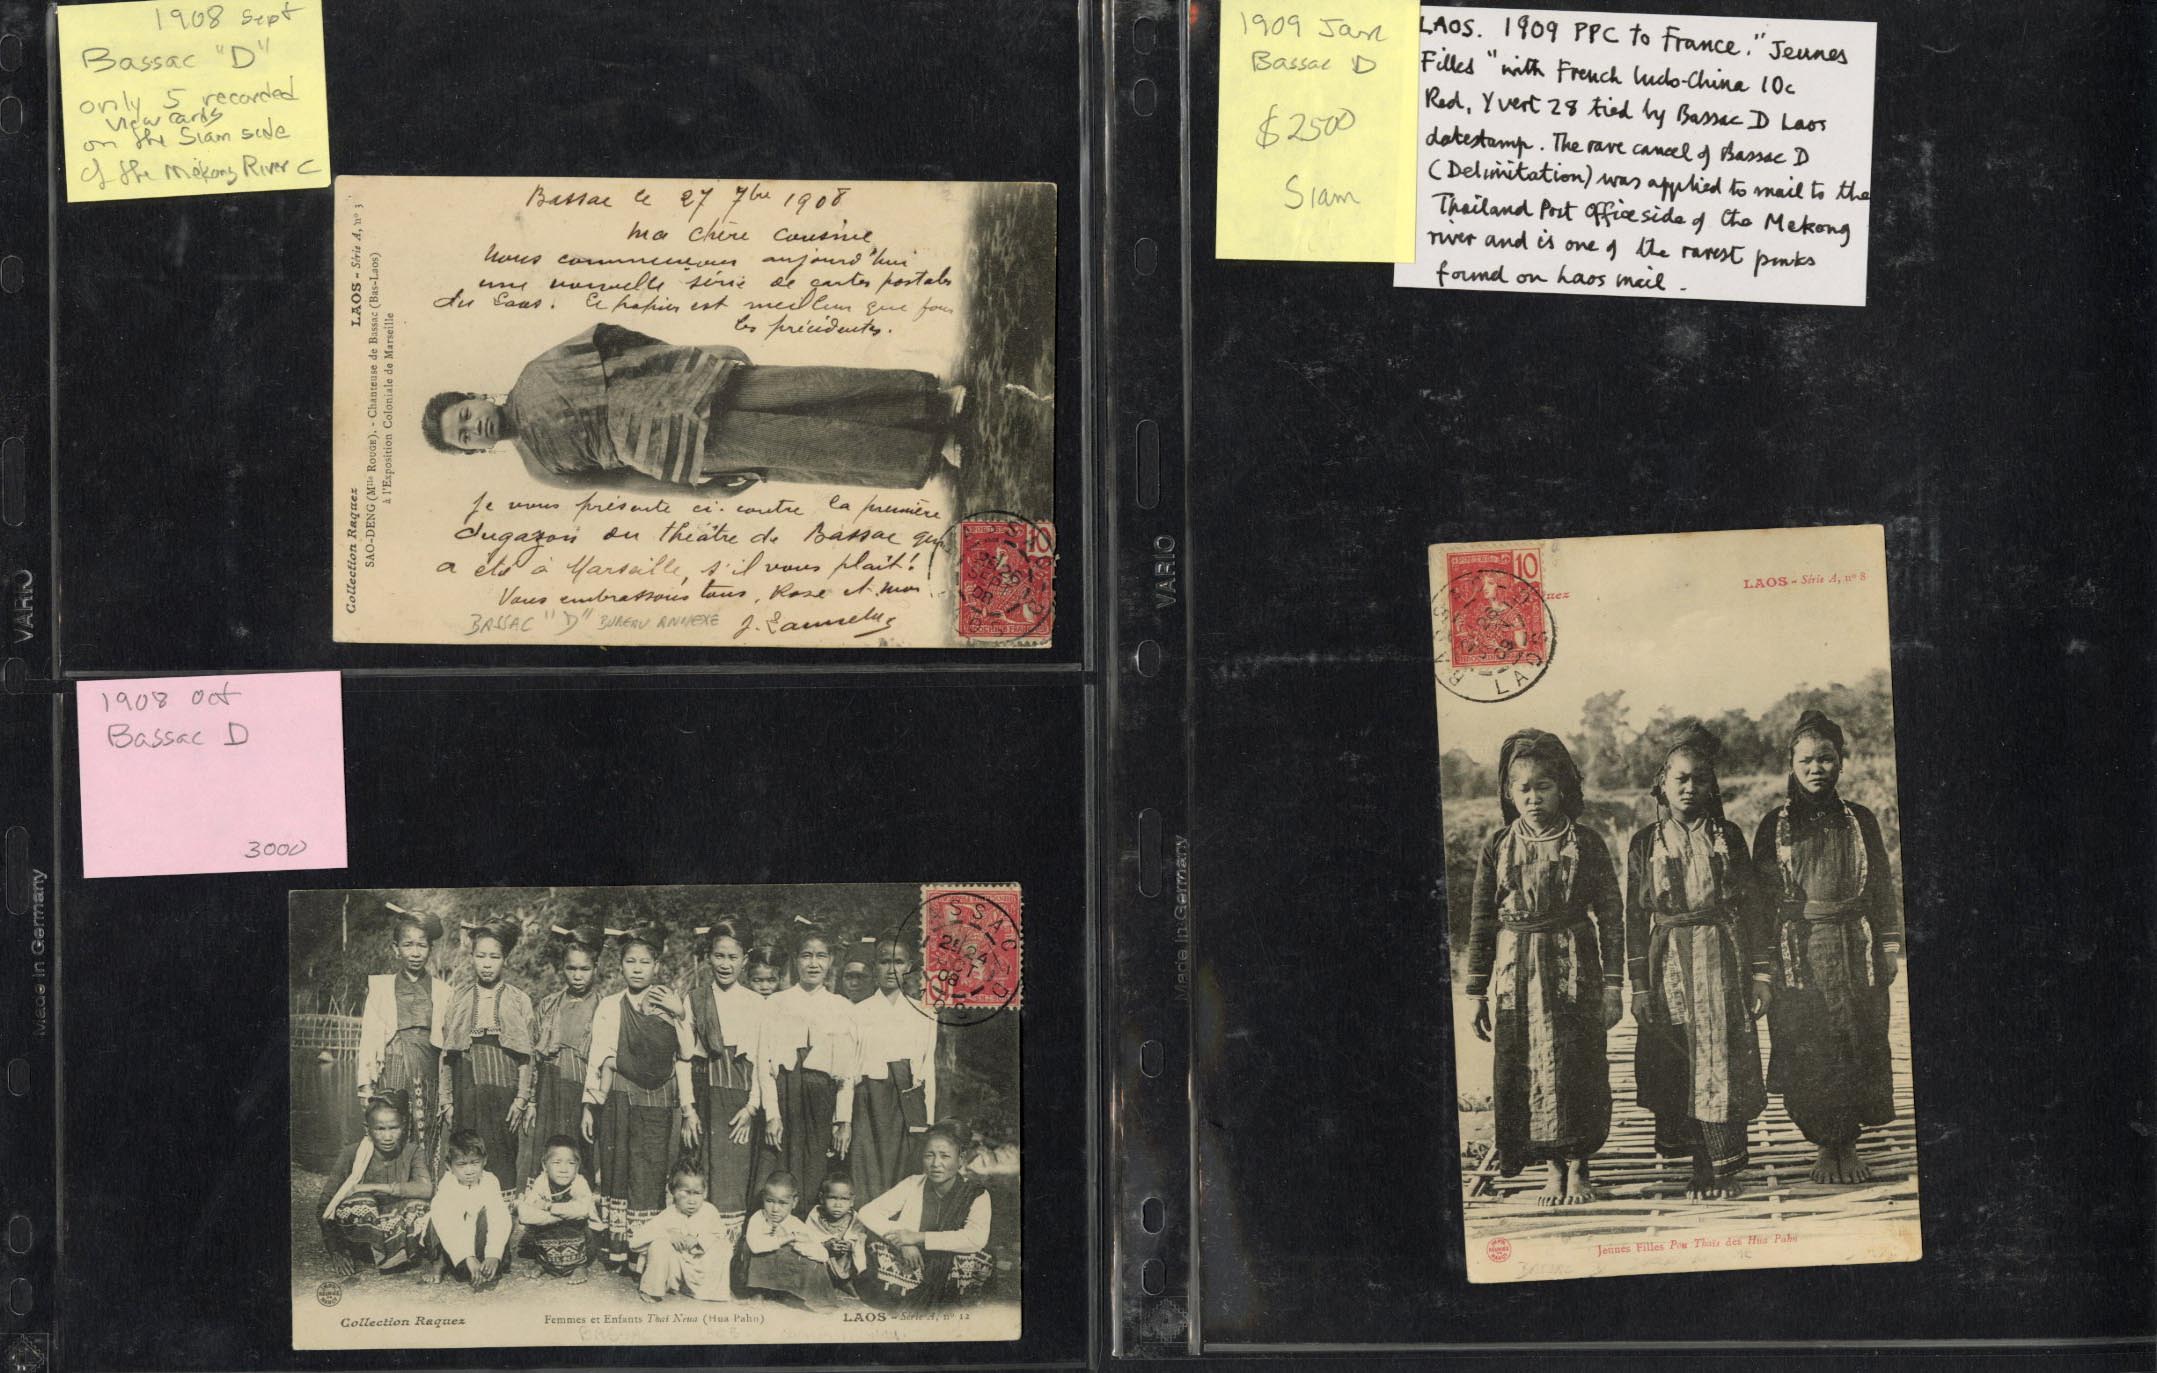 1908 Sept
Bassac "D"
only 5 recorded
view cards
on the Siam side
of the Mekong River C
Bassac le 27 7bre 1908
Ma chère cousine
Nous commençons aujourd'hui
une nouvelle série de cartes postales
du Laos. Le papier est meilleur que pour
les précédentes.
Je vous présente ci-contre la première
dugazon du théâtre de Bassac qui
a été à Marseille, s'il vous plaît!
Vous embrassons tous, Rose et moi
BASSAC "D" BUREAU ANNEXE
J.
Collection Raquez
LAOS - Série A, nº 3
SAO-DENG (Mlle ROUGE). - Chanteuse de Bassac (Bas-Laos)
à l'Exposition Coloniale de Marseille
10
26
SEPT
08
INDOCHINE FRANÇAISE
1908 Oct
Bassac D
3000
BASSAC - D
24
OCT
08
10
Collection Raquez
Femmes et Enfants Thai Neua (Hua Pahn)
LAOS - Série A, nº 12
1909 Jan
Bassac D
$2500
Siam
LAOS. 1909 PPC to France. "Jeunes
Filles" with French Indo-China 10c
Red, Yvert 28 tied by Bassac D Laos
datestamp. The rare cancel of Bassac D
(Delimitation) was applied to mail to the
Thailand Post Office side of the Mekong
river and is one of the rarest pmks
found on Laos mail.
10
BASSAC - D
LAOS
09
uez
LAOS - Série A, nº 8
Jeunes Filles Pou Thais des Hua Pahn
BASSAC
VARIO
Made in Germany
VARIO
Made in Germany